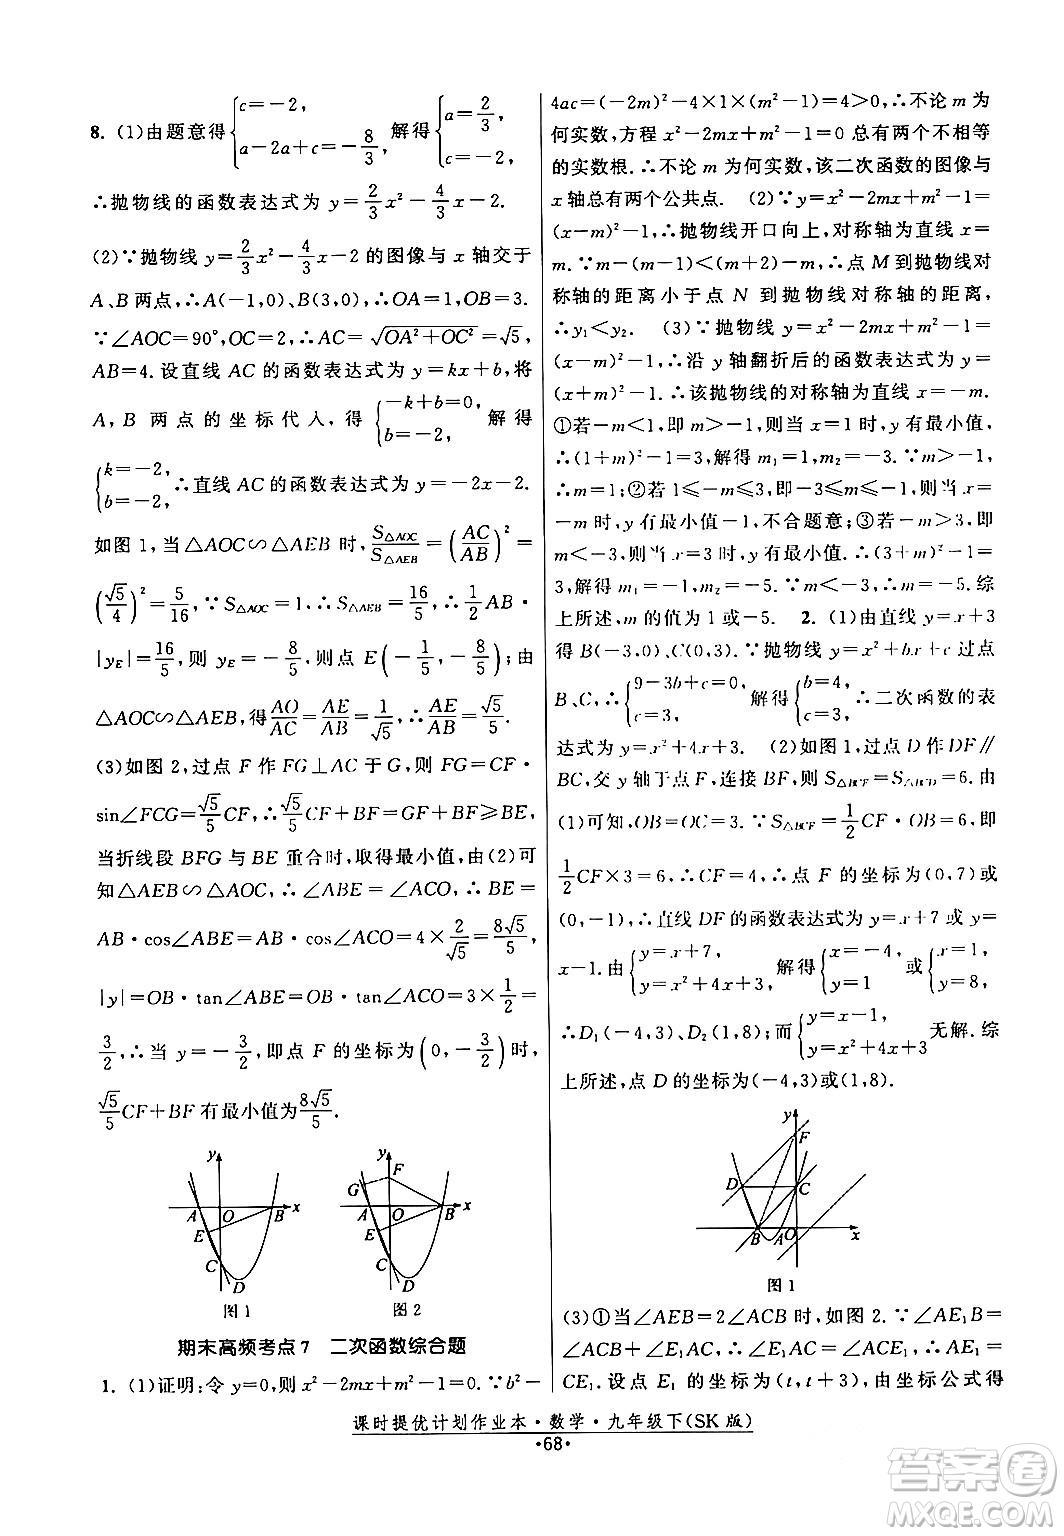 8. (1)由题意得{c=-2, a-2a+c=-8/3, 解得{a=2/3, c=-2.
∴抛物线的函数表达式为 y=2/3x²-4/3x-2.
(2)∵抛物线 y=2/3x²-4/3x-2 的图像与 x 轴交于
A、B 两点,∴A(-1,0)、B(3,0),∴OA=1,OB=3.
∵∠AOC=90°,OC=2,∴AC=√(OA²+OC²)=√5,
AB=4. 设直线 AC 的函数表达式为 y=kx+b,将
A,B 两点的坐标代入,得{-k+b=0, b=-2, 解得
{k=-2, b=-2, ∴直线 AC 的函数表达式为 y=-2x-2.
如图 1,当△AOC∽△AEB 时,S△AOC/S△AEB=(AC/AB)²=
(√5/4)²=5/16,∵S△AOC=1,∴S△AEB=16/5,∴1/2AB·
|yE|=16/5,则 yE=-8/5,则点 E(-1/5,-8/5);由
△AOC∽△AEB,得AO/AC=AE/AB=1/√5,∴AE/AB=√5/5.
(3)如图 2,过点 F 作 FG⊥AC 于 G,则 FG=CF·
sin∠FCG=√5/5CF,∴√5/5CF+BF=GF+BF≥BE,
当折线段 BFG 与 BE 重合时,取得最小值,由(2)可
知△AEB∽△AOC,∴∠ABE=∠ACO,∴BE=
AB·cos∠ABE=AB·cos∠ACO=4×2/√5=8√5/5,
|y|=OB·tan∠ABE=OB·tan∠ACO=3×1/2=
3/2,∴当 y=-3/2,即点 F 的坐标为(0,-3/2)时,
√5/5CF+BF 有最小值为8√5/5.
y
A O B x
E
C D
图 1
y
G F
A O B x
E
C D
图 2
期末高频考点 7 二次函数综合题
1. (1)证明:令 y=0,则 x²-2mx+m²-1=0.∵b²-
4ac=(-2m)²-4×1×(m²-1)=4>0,∴不论 m 为
何实数,方程 x²-2mx+m²-1=0 总有两个不相等
的实数根.∴不论 m 为何实数,该二次函数的图像与
x 轴总有两个公共点. (2)∵y=x²-2mx+m²-1=
(x-m)²-1,∴抛物线开口向上,对称轴为直线 x=
m.∵m-1<m<m+2,∴点 M 到抛物线对
称轴的距离小于点 N 到抛物线对称轴的距离,
∴y₁<y₂. (3)∵抛物线 y=x²-2mx+m²-1=
(x-m)²-1,∴沿 y 轴翻折后的函数表达式为 y=
(x+m)²-1.∴该抛物线的对称轴为直线 x=-m.
①若-m<1,即 m>-1,当 x=1时,y 有最小值,
∴(1+m)²-1=3,解得 m₁=1,m₂=-3.∵m>-1,
∴m=1;②若 1≤-m≤3,即-3≤m≤-1,则当 x=
-m 时,y 有最小值-1,不合题意;③若-m>3,即
m<-3,则当 x=3 时,y 有最小值.∴(3+m)²-1=
3,解得 m₁=-1,m₂=-5.∵m<-3,∴m=-5.综
上所述,m 的值为 1 或-5. 2. (1)由直线 y=x+3
得 B(-3,0)、C(0,3).∵抛物线 y=x²+bx+c 过点
B、C,∴{9-3b+c=0, c=3, 解得{b=4, c=3, ∴二次函数的表
达式为 y=x²+4x+3. (2)如图 1,过点 D 作 DF∥
BC,交 y轴于点 F,连接 BF,则 S△BCF=S△BCD=6.由
(1)可知,OB=OC=3.∵S△BCF=1/2CF·OB=6,即
1/2CF×3=6,∴CF=4,∴点 F 的坐标为(0,7)或
(0,-1),∴直线 DF 的函数表达式为 y=x+7 或 y=
x-1.由{y=x+7, y=x²+4x+3, 解得{x=-4, y=3, 或{x=1, y=8,
∴D₁(-4,3)、D₂(1,8);而{y=x-1, y=x²+4x+3 无解.综
上所述,点 D 的坐标为(-4,3)或(1,8).
y
F
D C
B A O x
图 1
(3)①当∠AEB=2∠ACB 时,如图 2.∵∠AE₁B=
∠E₁AC+∠ACE₁,∴∠E₁AC=∠ACE₁,∴AE₁=
CE₁.设点 E₁ 的坐标为(t,t+3),由坐标公式得
课时提优计划作业本·数学·九年级下(SK 版)
·68·
答案圈
MXQE.COM